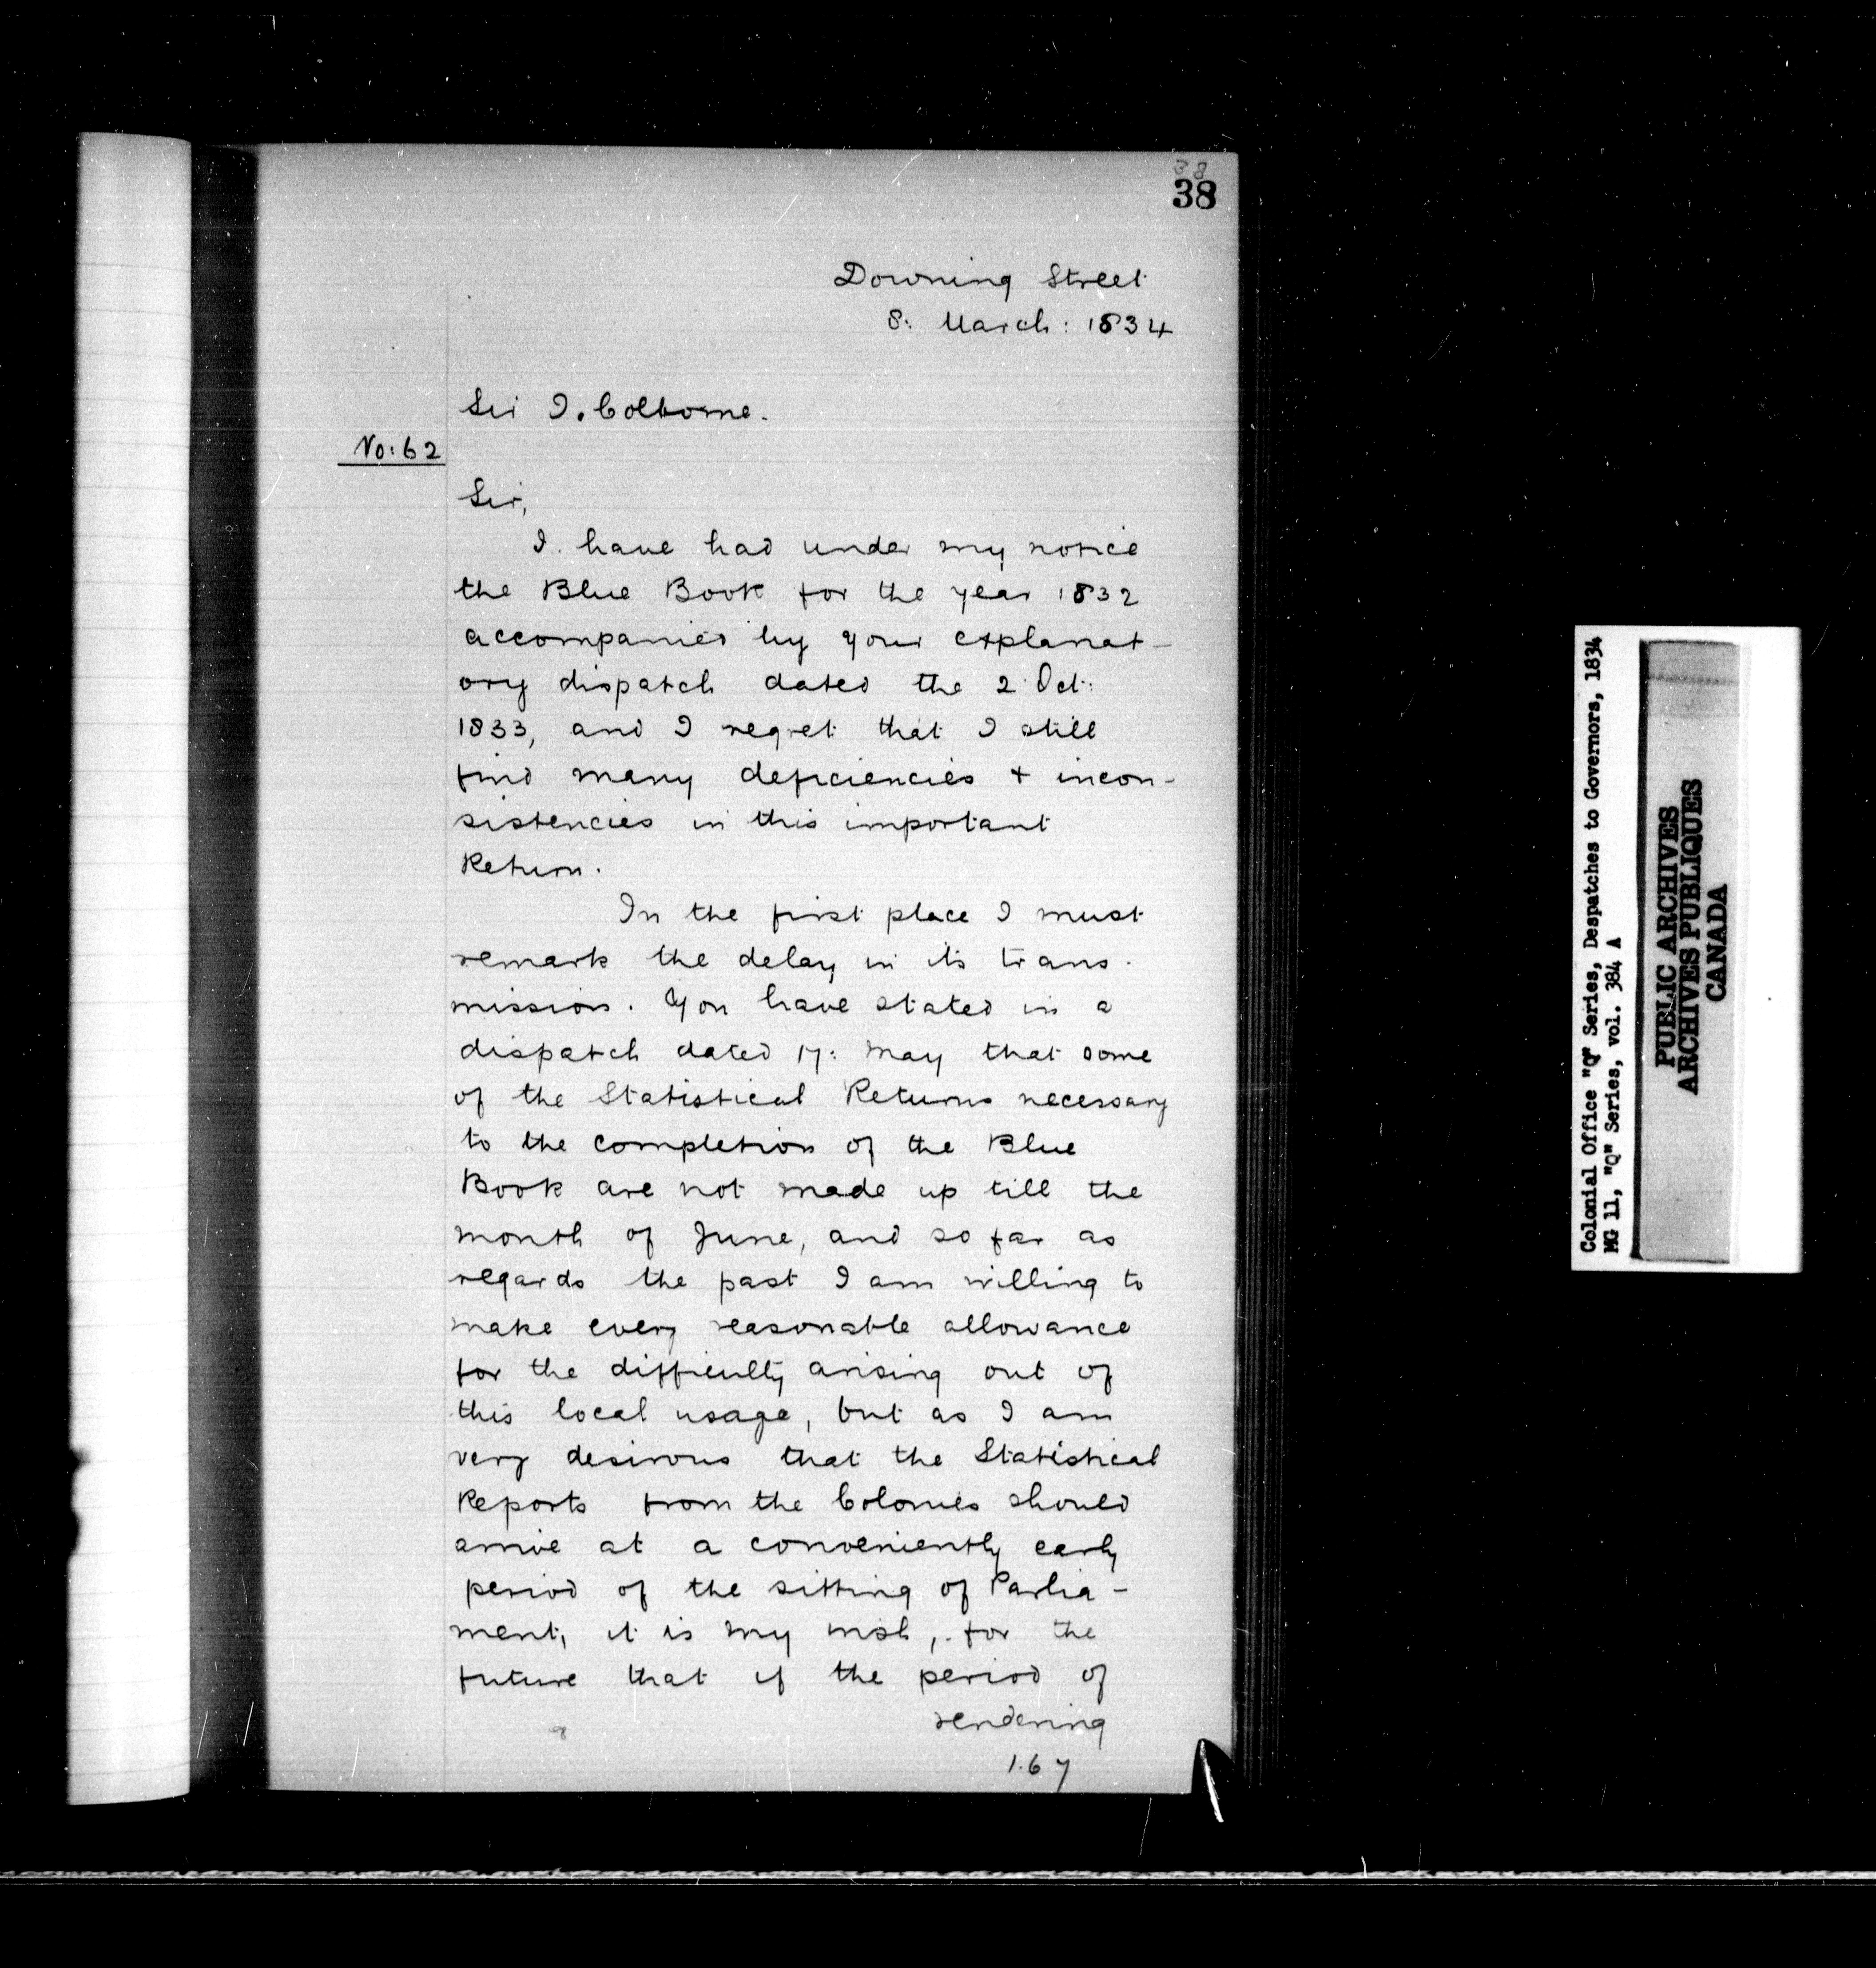 38
38
Downing Street
8: March: 1834
Sir J. Colborne.
No: 62
Sir,
I have had under my notice
the Blue Book for the year 1832
accompanied by your explanat-
ory dispatch dated the 2 Oct:
1833, and I regret that I still
find many deficiencies + incon-
sistencies in this important
Return.
In the first place I must
remark the delay in its trans-
mission. You have stated in a
dispatch dated 17: May that some
of the Statistical Returns necessary
to the completion of the Blue
Book are not made up till the
month of June, and so far as
regards the past I am willing to
make every reasonable allowance
for the difficulty arising out of
this local usage, but as I am
very desirous that the Statistical
Reports from the Colonies should
arrive at a conveniently early
period of the sitting of Parlia-
ment, it is my wish, for the
future that if the period of
rendering
167
Colonial Office "Q" Series, Despatches to Governors, 1834
MG 11, "Q" Series, vol. 384 A
PUBLIC ARCHIVES
ARCHIVES PUBLIQUES
CANADA